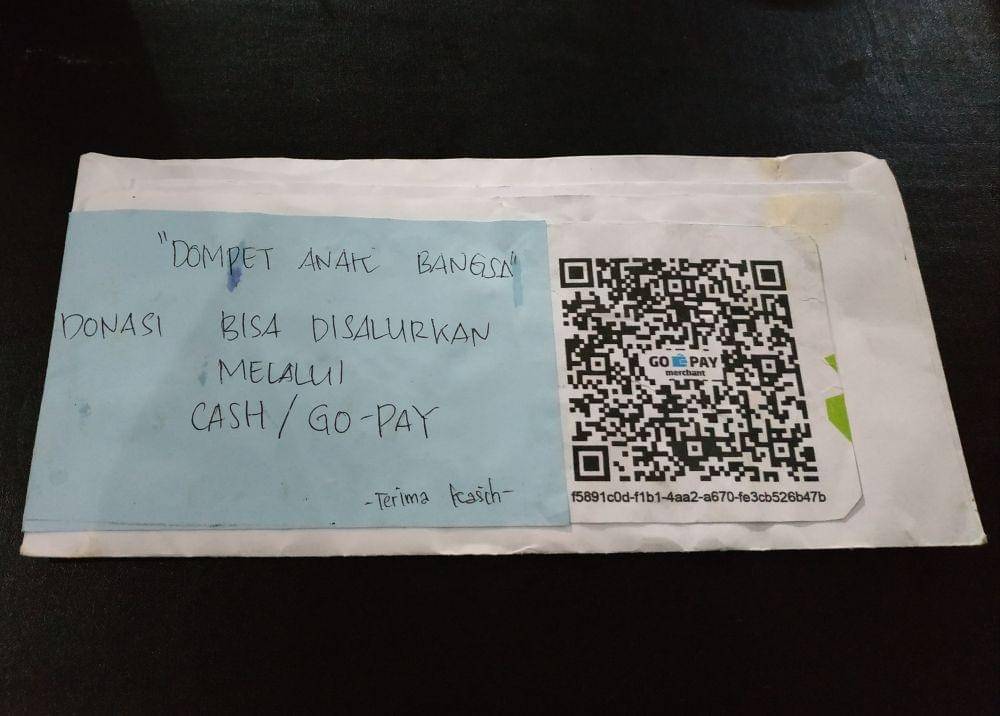 "DOMPET ANAK BANGSA"
DONASI BISA DISALURKAN
MELALUI
CASH / GO-PAY
-Terima kasih-
GO PAY
merchant
f5891c0d-f1b1-4aa2-a670-fe3cb526b47b